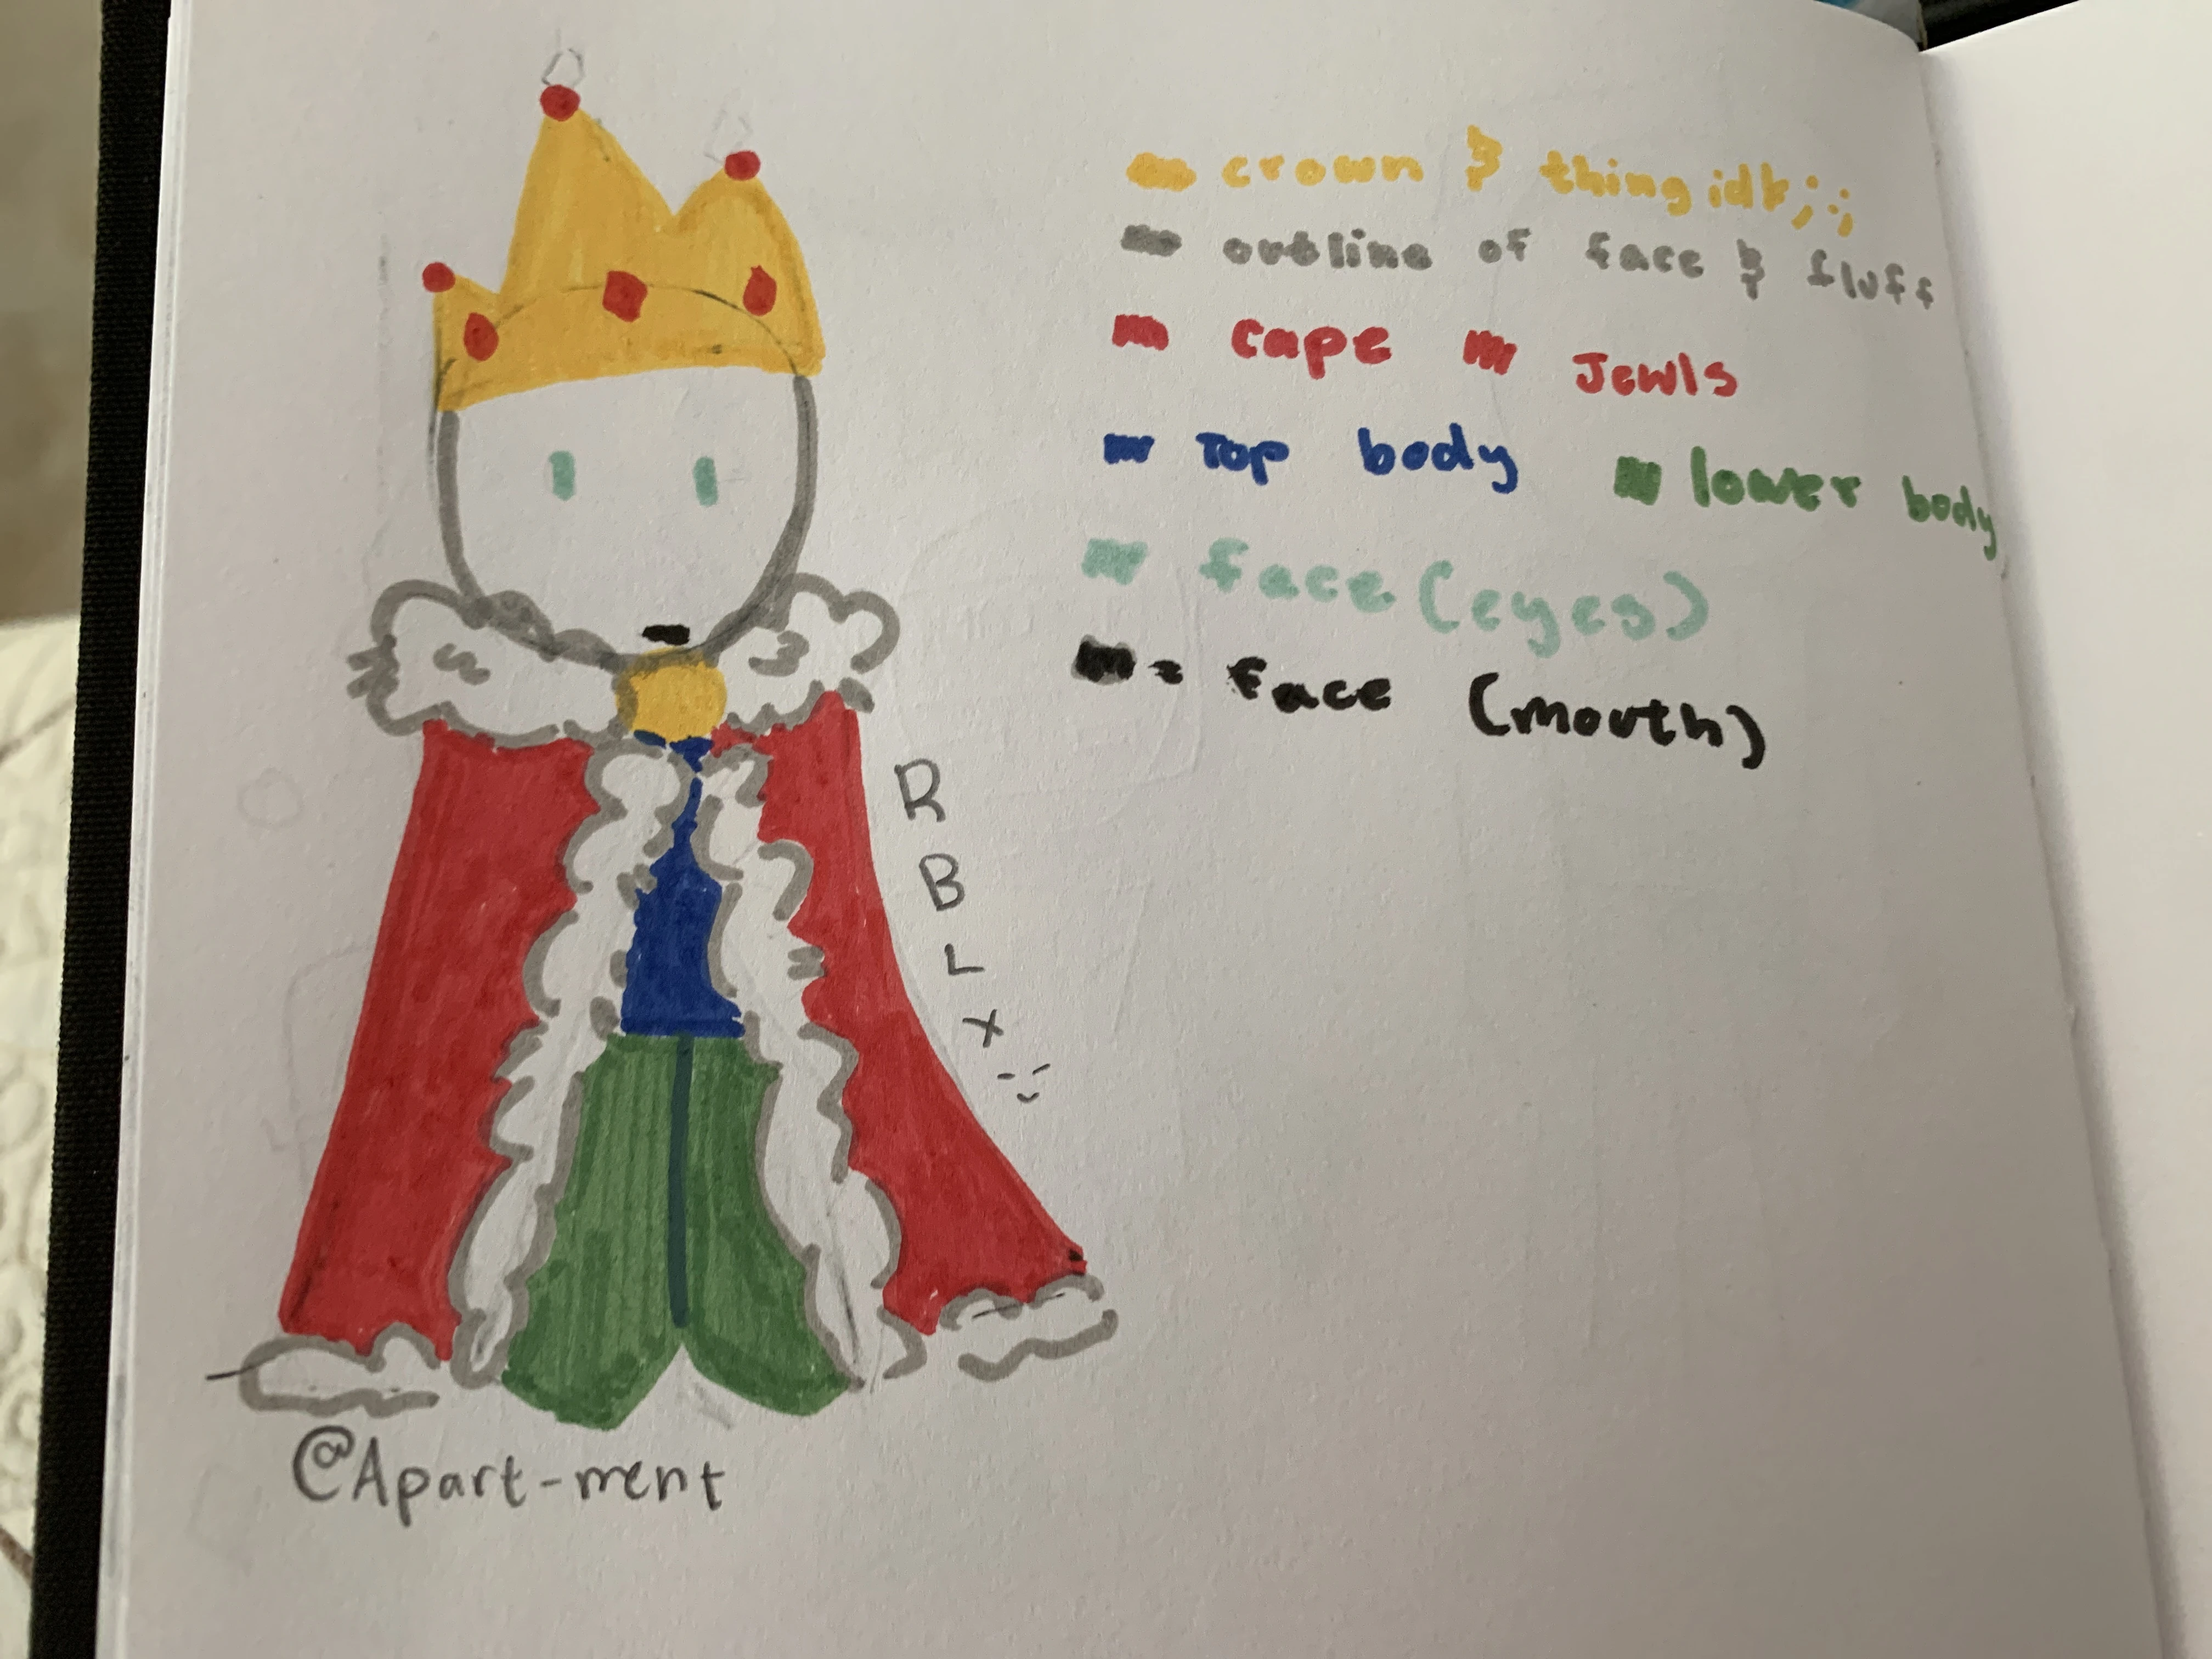 crown & thing idk;;;
outline of face & fluff
cape Jewls
Top body lower body
face (eyes)
= face (mouth)
R
B
L
X
@Apart-ment